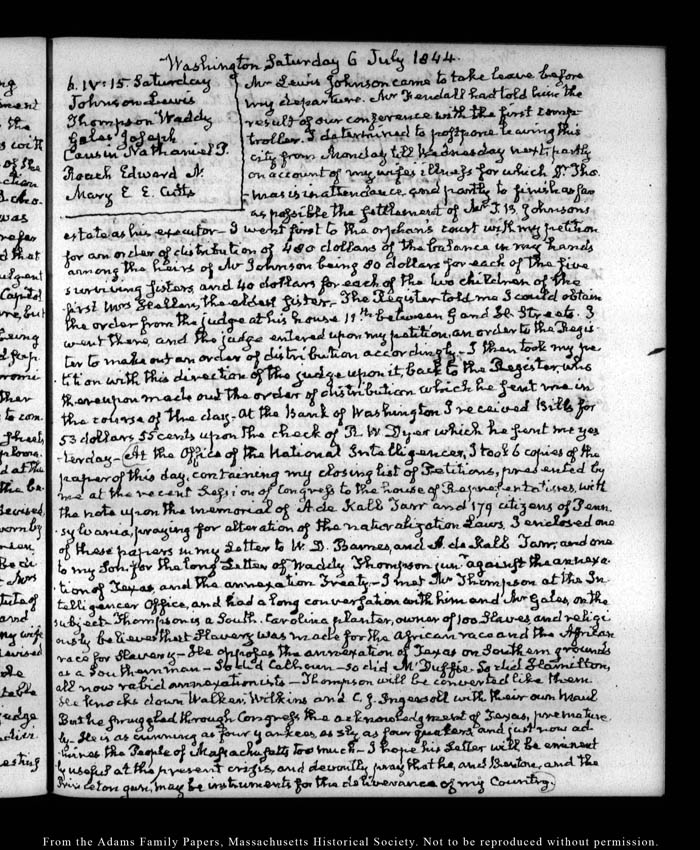 Washington Saturday 6 July 1844.
6. IV: 15. Saturday
Johnson Lewis
Thompson Waddy
Gales Joseph
Causin Nathaniel P.
Roach Edward N.
Mary E. E. Cutts
Mr Lewis Johnson came to take leave before
my departure. Mr Kendall had told him the
result of our conference with the first comp-
troller. I determined to postpone leaving this
city from Monday till Wednesday next, partly
on account of my wife's illness for which Dr Tho-
mas is in attendance, and partly to finish as far
as possible the settlement of Mr T. B. Johnson's
estate as his executor— I went first to the orphan's court with my petition
for an order of distribution of 480 dollars of the balance in my hands
among the heirs of Mr Johnson being 80 dollars for each of the five
surviving sisters, and 40 dollars for each of the two children of the
first Mrs Hellen, the eldest sister. The Register told me I could obtain
the order from the judge at his house 11th between G and H. Streets. I
went there, and the judge entered upon my petition, an order to the Regis-
ter to make out an order of distribution accordingly— I then took my pe-
tition with this direction of the judge upon it, back to the Register, who
thereupon made out the order of distribution which he sent me in
the course of the day— At the Bank of Washington I received Bills for
53 dollars 55 cents upon the check of R. W Dyer which he sent me yes-
terday— At the Office of the National Intelligencer, I took 6 copies of the
paper of this day, containing my closing list of Petitions, presented by
me at the recent Session of Congress to the house of Representatives, with
the note upon the memorial of A de Kalb Tarr and 179 citizens of Penn-
sylvania, praying for alteration of the naturalization Laws. I enclosed one
of these papers in my Letter to W. D. Barnes, and A. de Kalb Tarr, and one
to my Son, for the long Letter of Waddy Thompson jun. against the annexa-
tion of Texas, and the annexation Treaty— I met Mr Thompson at the In-
telligencer Office, and had a long conversation with him and Mr Gales, on the
subject— Thompson is a South. Carolina planter, owner of 100 Slaves, and religi-
ously believes that Slavery was made for the African race and the African
race for Slavery— He opposes the annexation of Texas on Southern grounds
as a Southern man— So did Calhoun— So did McDuffie, So did Hamilton,
all now rabid annexationists— Thompson will be converted like them.
He knocks down Walker, Wilkins and C. J. Ingersoll with their own Maul
But he smuggled through Congress the acknowledgment of Texas, premature-
ly— He is as cunning as four yankees, as sly as four quakers and just now ad-
mires the People of Massachusetts too much— I hope his Letter will be eminent-
ly useful at the present crisis, and devoutly pray that he, and Benton, and the
Princeton gun, may be instruments for the deliverance of my Country.
From the Adams Family Papers, Massachusetts Historical Society. Not to be reproduced without permission.